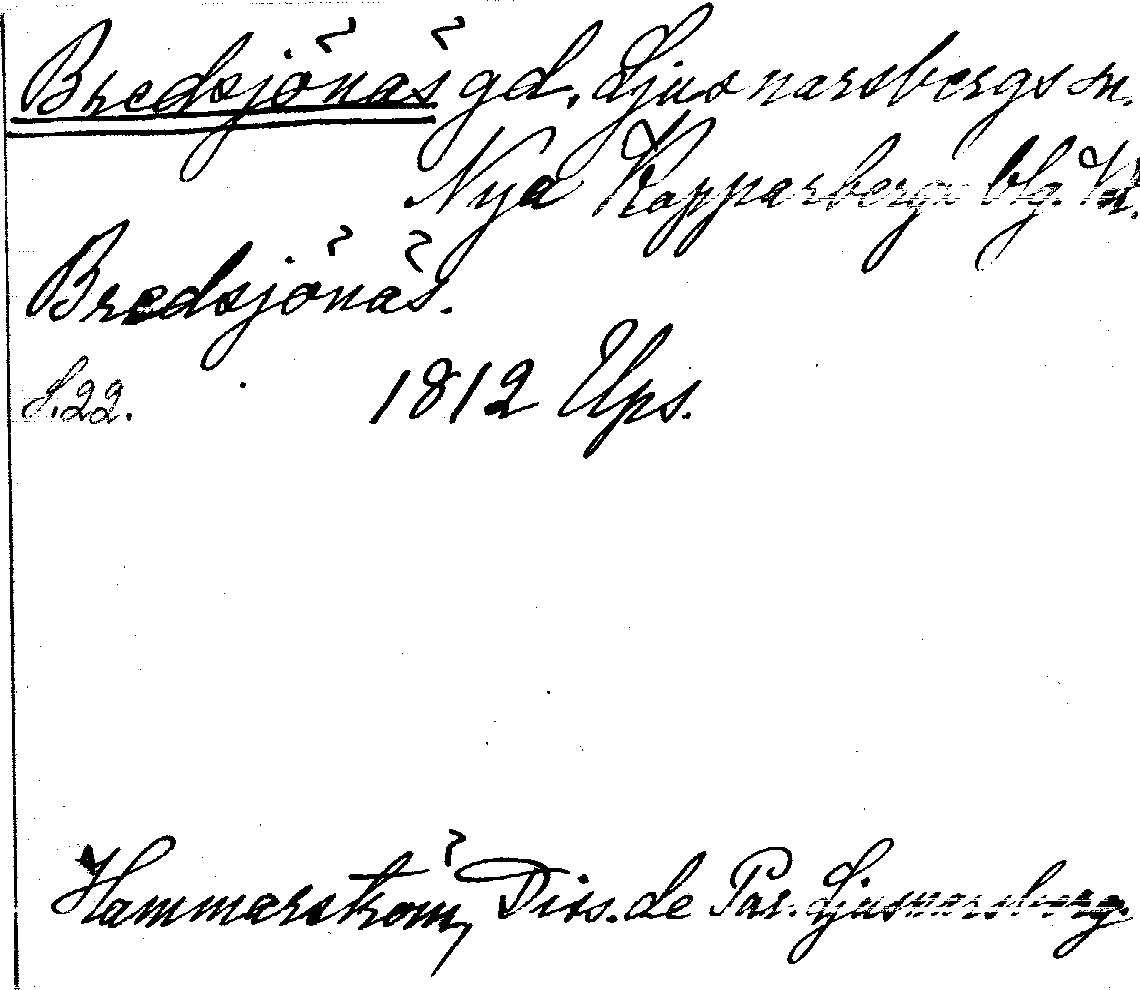 Bredsjönäs gd, Ljusnarsbergs sn.
Nya Kopparbergs blg. Vtl.
Bredsjönäs.
S.22. 1812 Ups.
Hammarström, Diss. de Par. Ljusnarsberg.